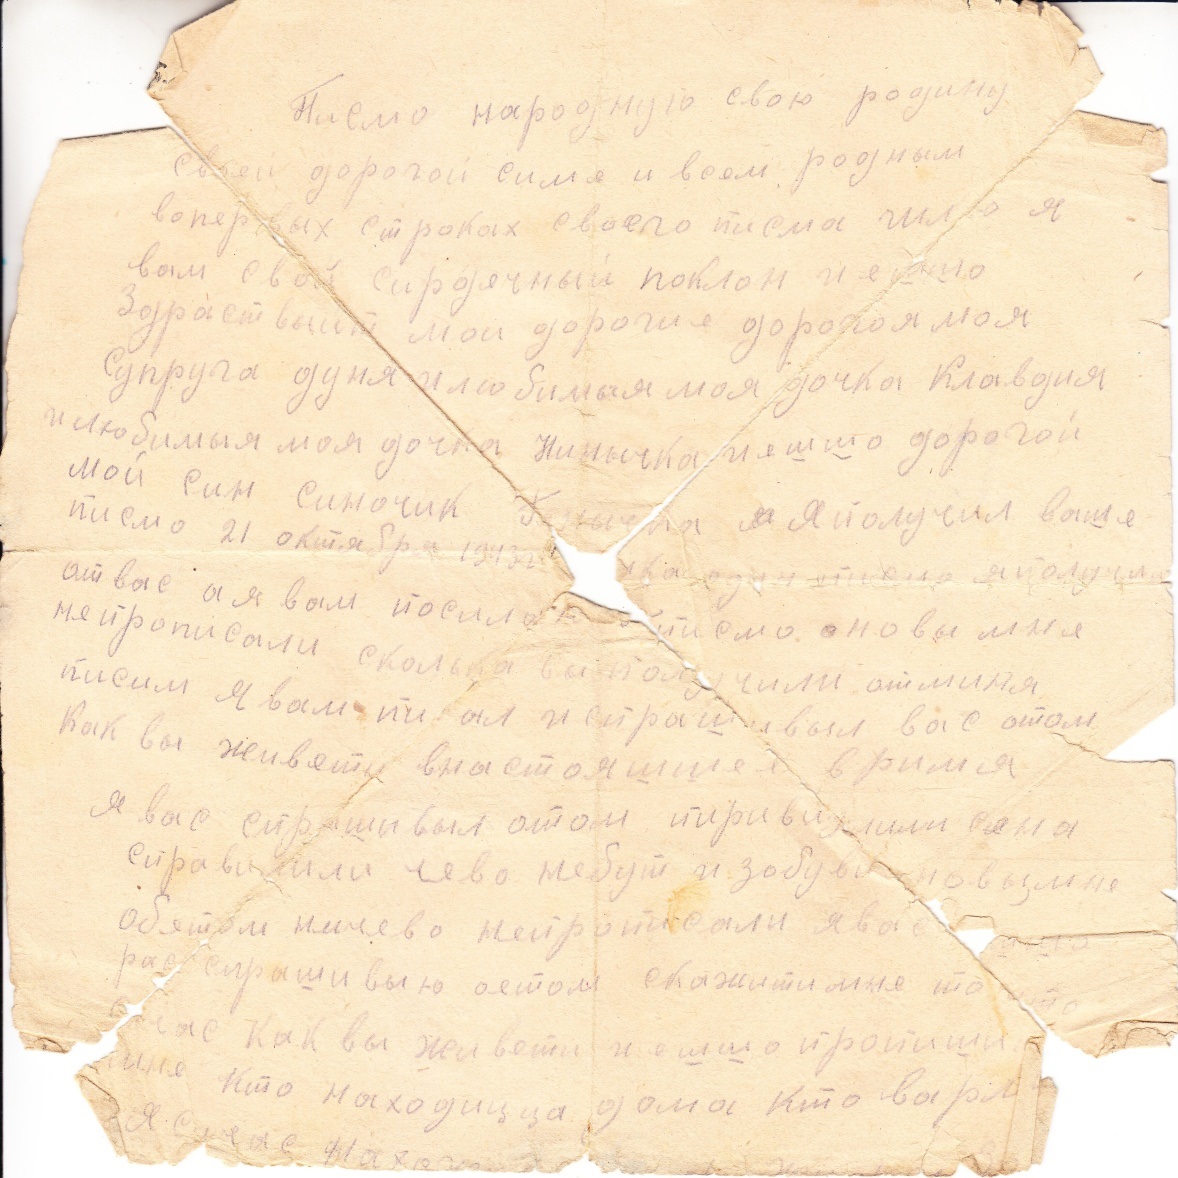 Писмо народную свою родину
своей дорогой симе и всем родным
вопервых строках своего писма чилю я
вам свой сирдечный поклон и ешшо
Здраствыйт мои дорогие дорогоя моя
Супруга дуня и любимыя моя дочка Клавдия
и любимыя моя дочка Нинычка и ешшо дорогой
мой син синочик я получил ваше
писмо 21 октября 1943г один писмо я получил
от вас а я вам посилаю писмо но вы мне
непрописали сколька вы получили отминя
писим Я вам писал и спрашивыл вас отом
Как вы живети внастояшшее время
я вас спрашивыл отом сена
справили чево небут и зобуви но вы мне
обетом ничево непрописали я вас ешшо
рас спрашивыю оетом скажити мне то што
счас Как вы живети и ешшо пропиши
мне Кто находицца дома кто варм
Я счас